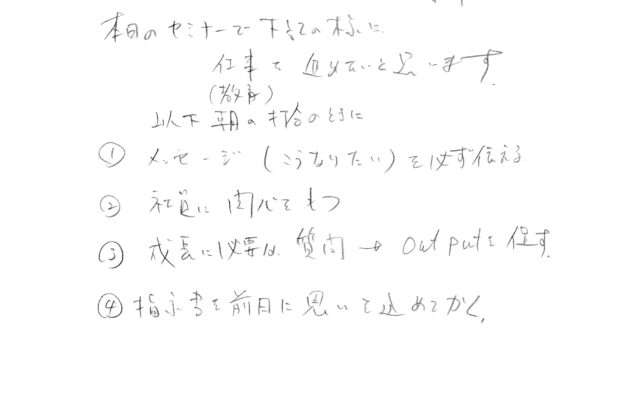 本日のセミナーで下記の様に
仕事を進めたいと思います。
(教育)
以下朝の朝令のときに
① メッセージ (こうなりたい) を必ず伝える
② 社員に関心をもつ
③ 成長に必要な質問 → outputを促す。
④ 指示書を前日に思いを込めてかく。